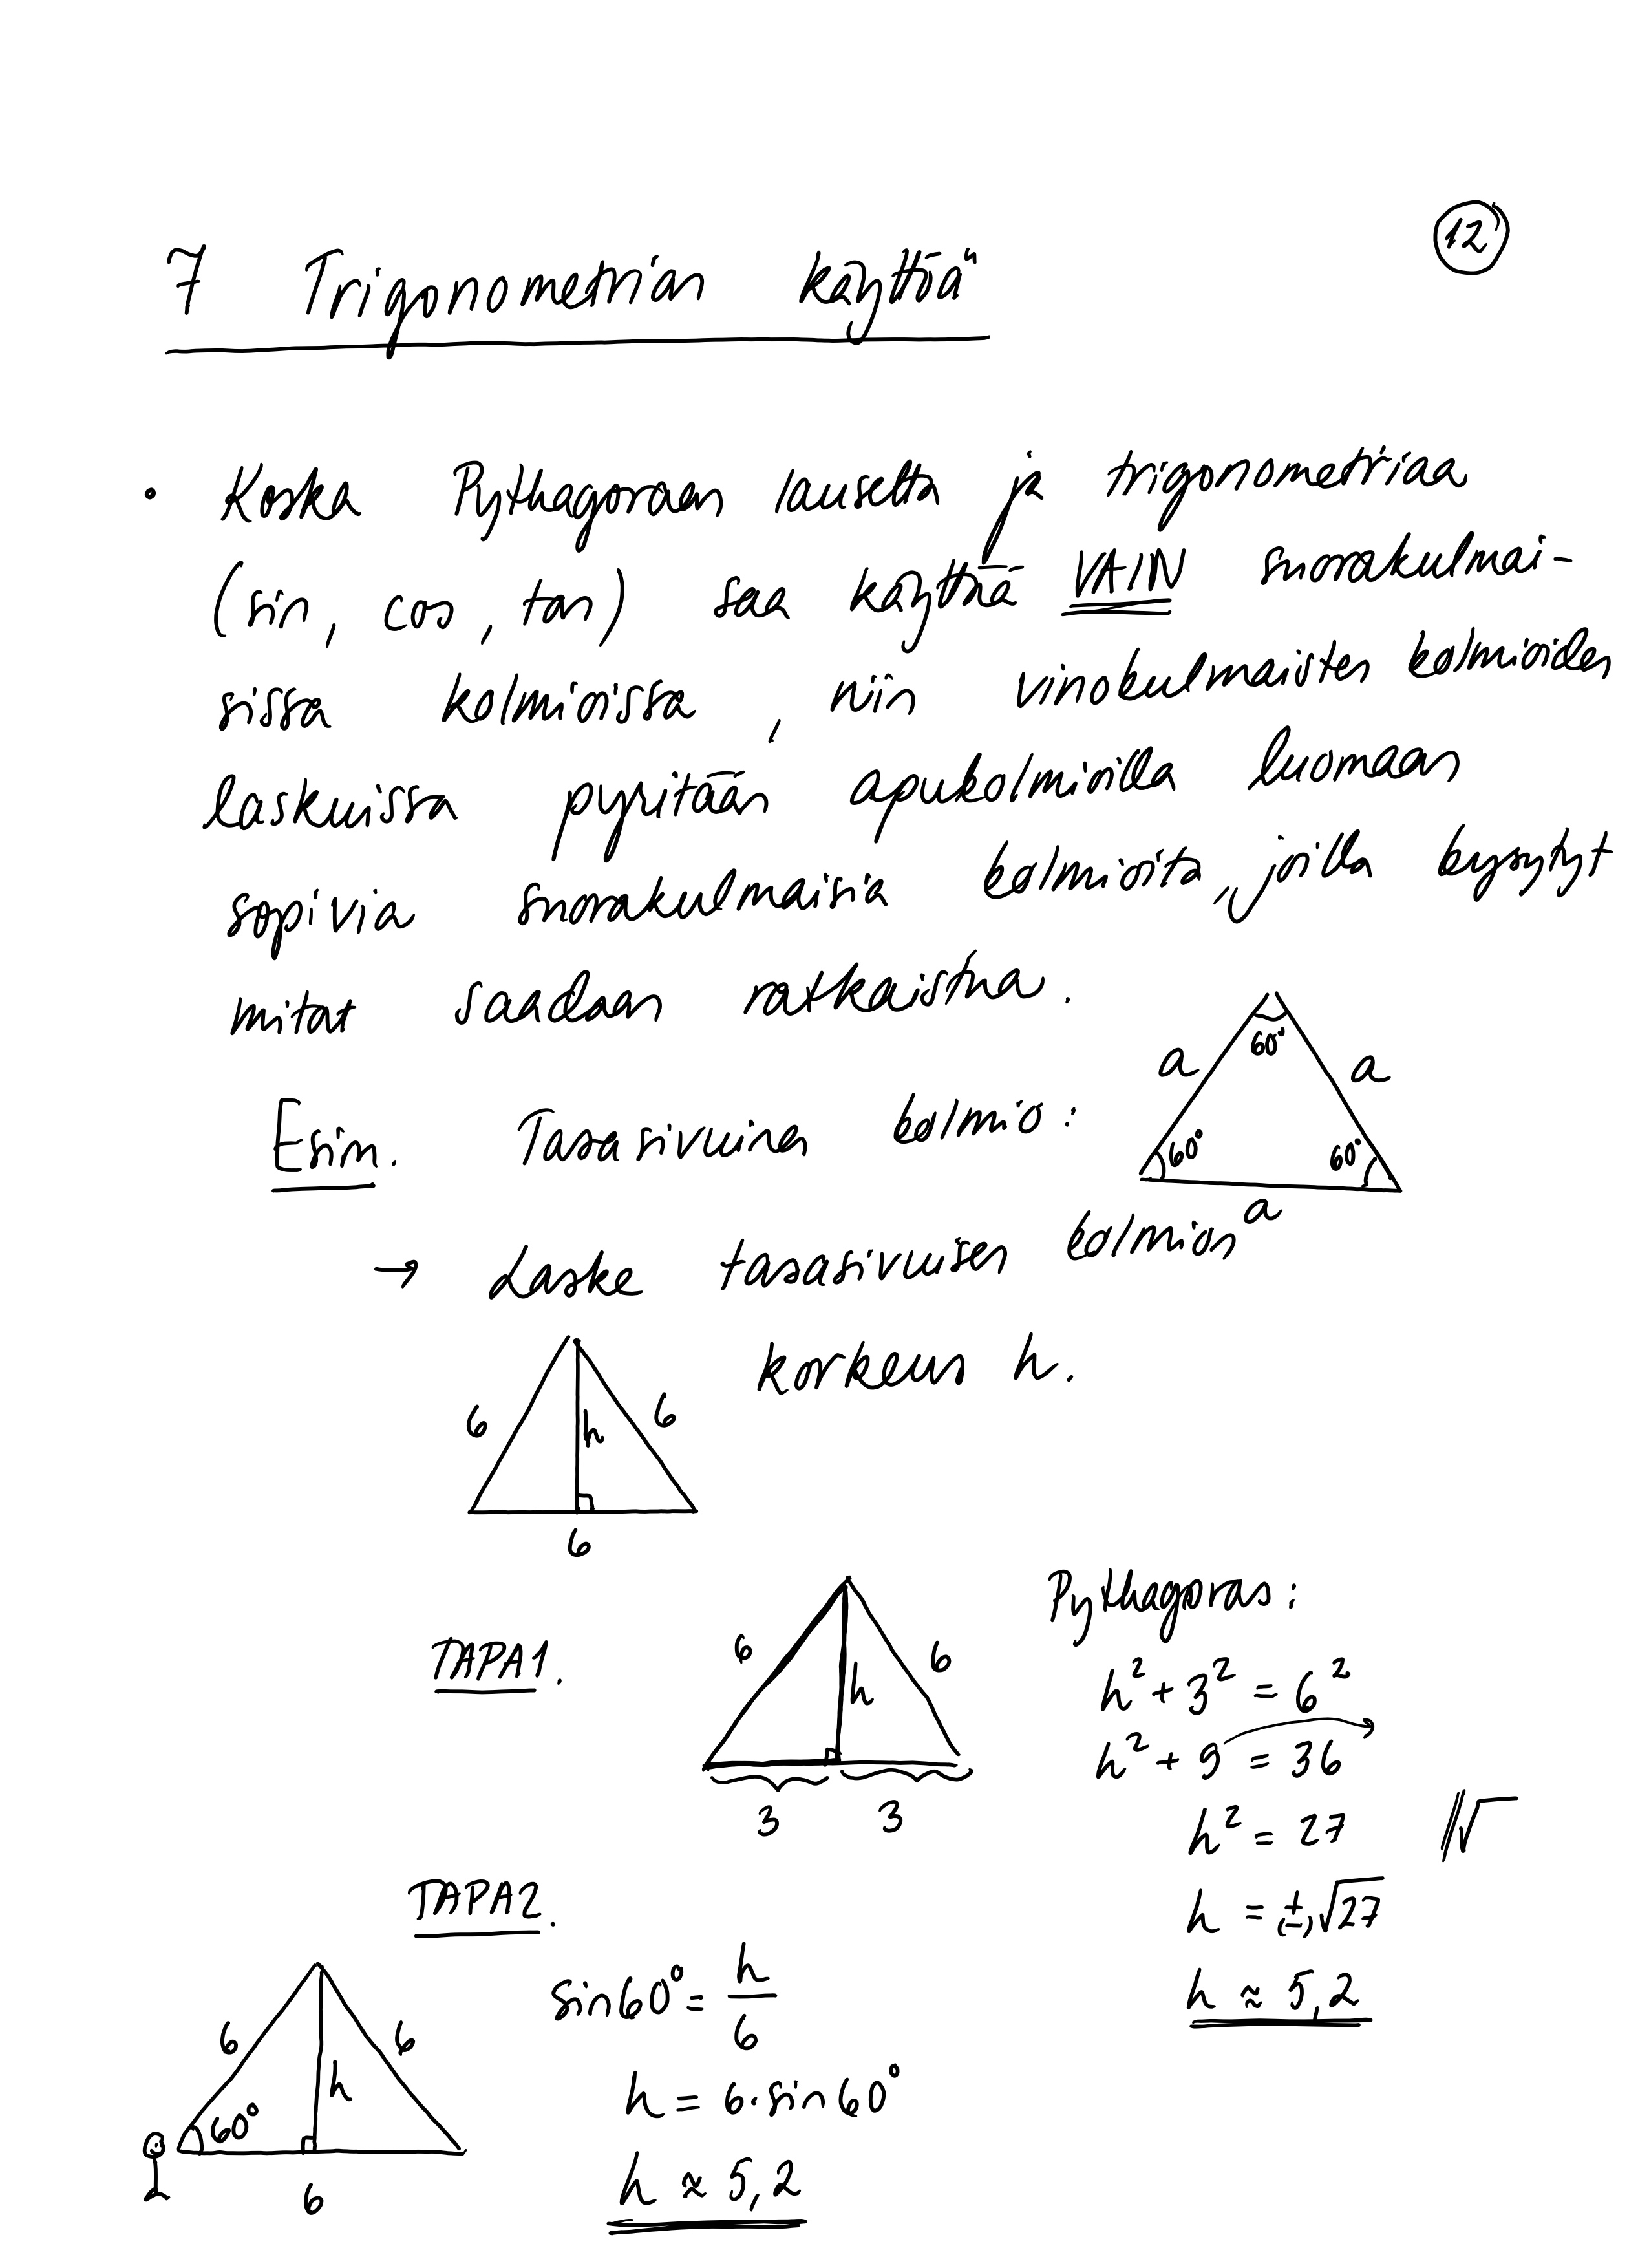 12
7 Trigonometrian käyttöä
• Koska Pythagoraan lausetta ja trigonometriaa
(sin, cos, tan) saa käyttää VAIN suorakulmai-
sissa kolmioissa, niin vinokulmaisten kolmioiden
laskuissa pyritään apukolmioilla luomaan
sopivia suorakulmaisia kolmioita, joilla kysytyt
mitat saadaan ratkaistua.
60°
a a
Esim. Tasasivuinen kolmio:
60° 60°
a
→ Laske tasasivuisen kolmion
korkeus h.
6 h 6
6
Pythagoras:
TAPA1.
6 h 6
h² + 3² = 6²
h² + 9 = 36
3 3
h² = 27 ‖√
h = (±)√27
h ≈ 5,2
TAPA2.
6 h 6
60°
6
sin60° = h/6
h = 6·sin60°
h ≈ 5,2